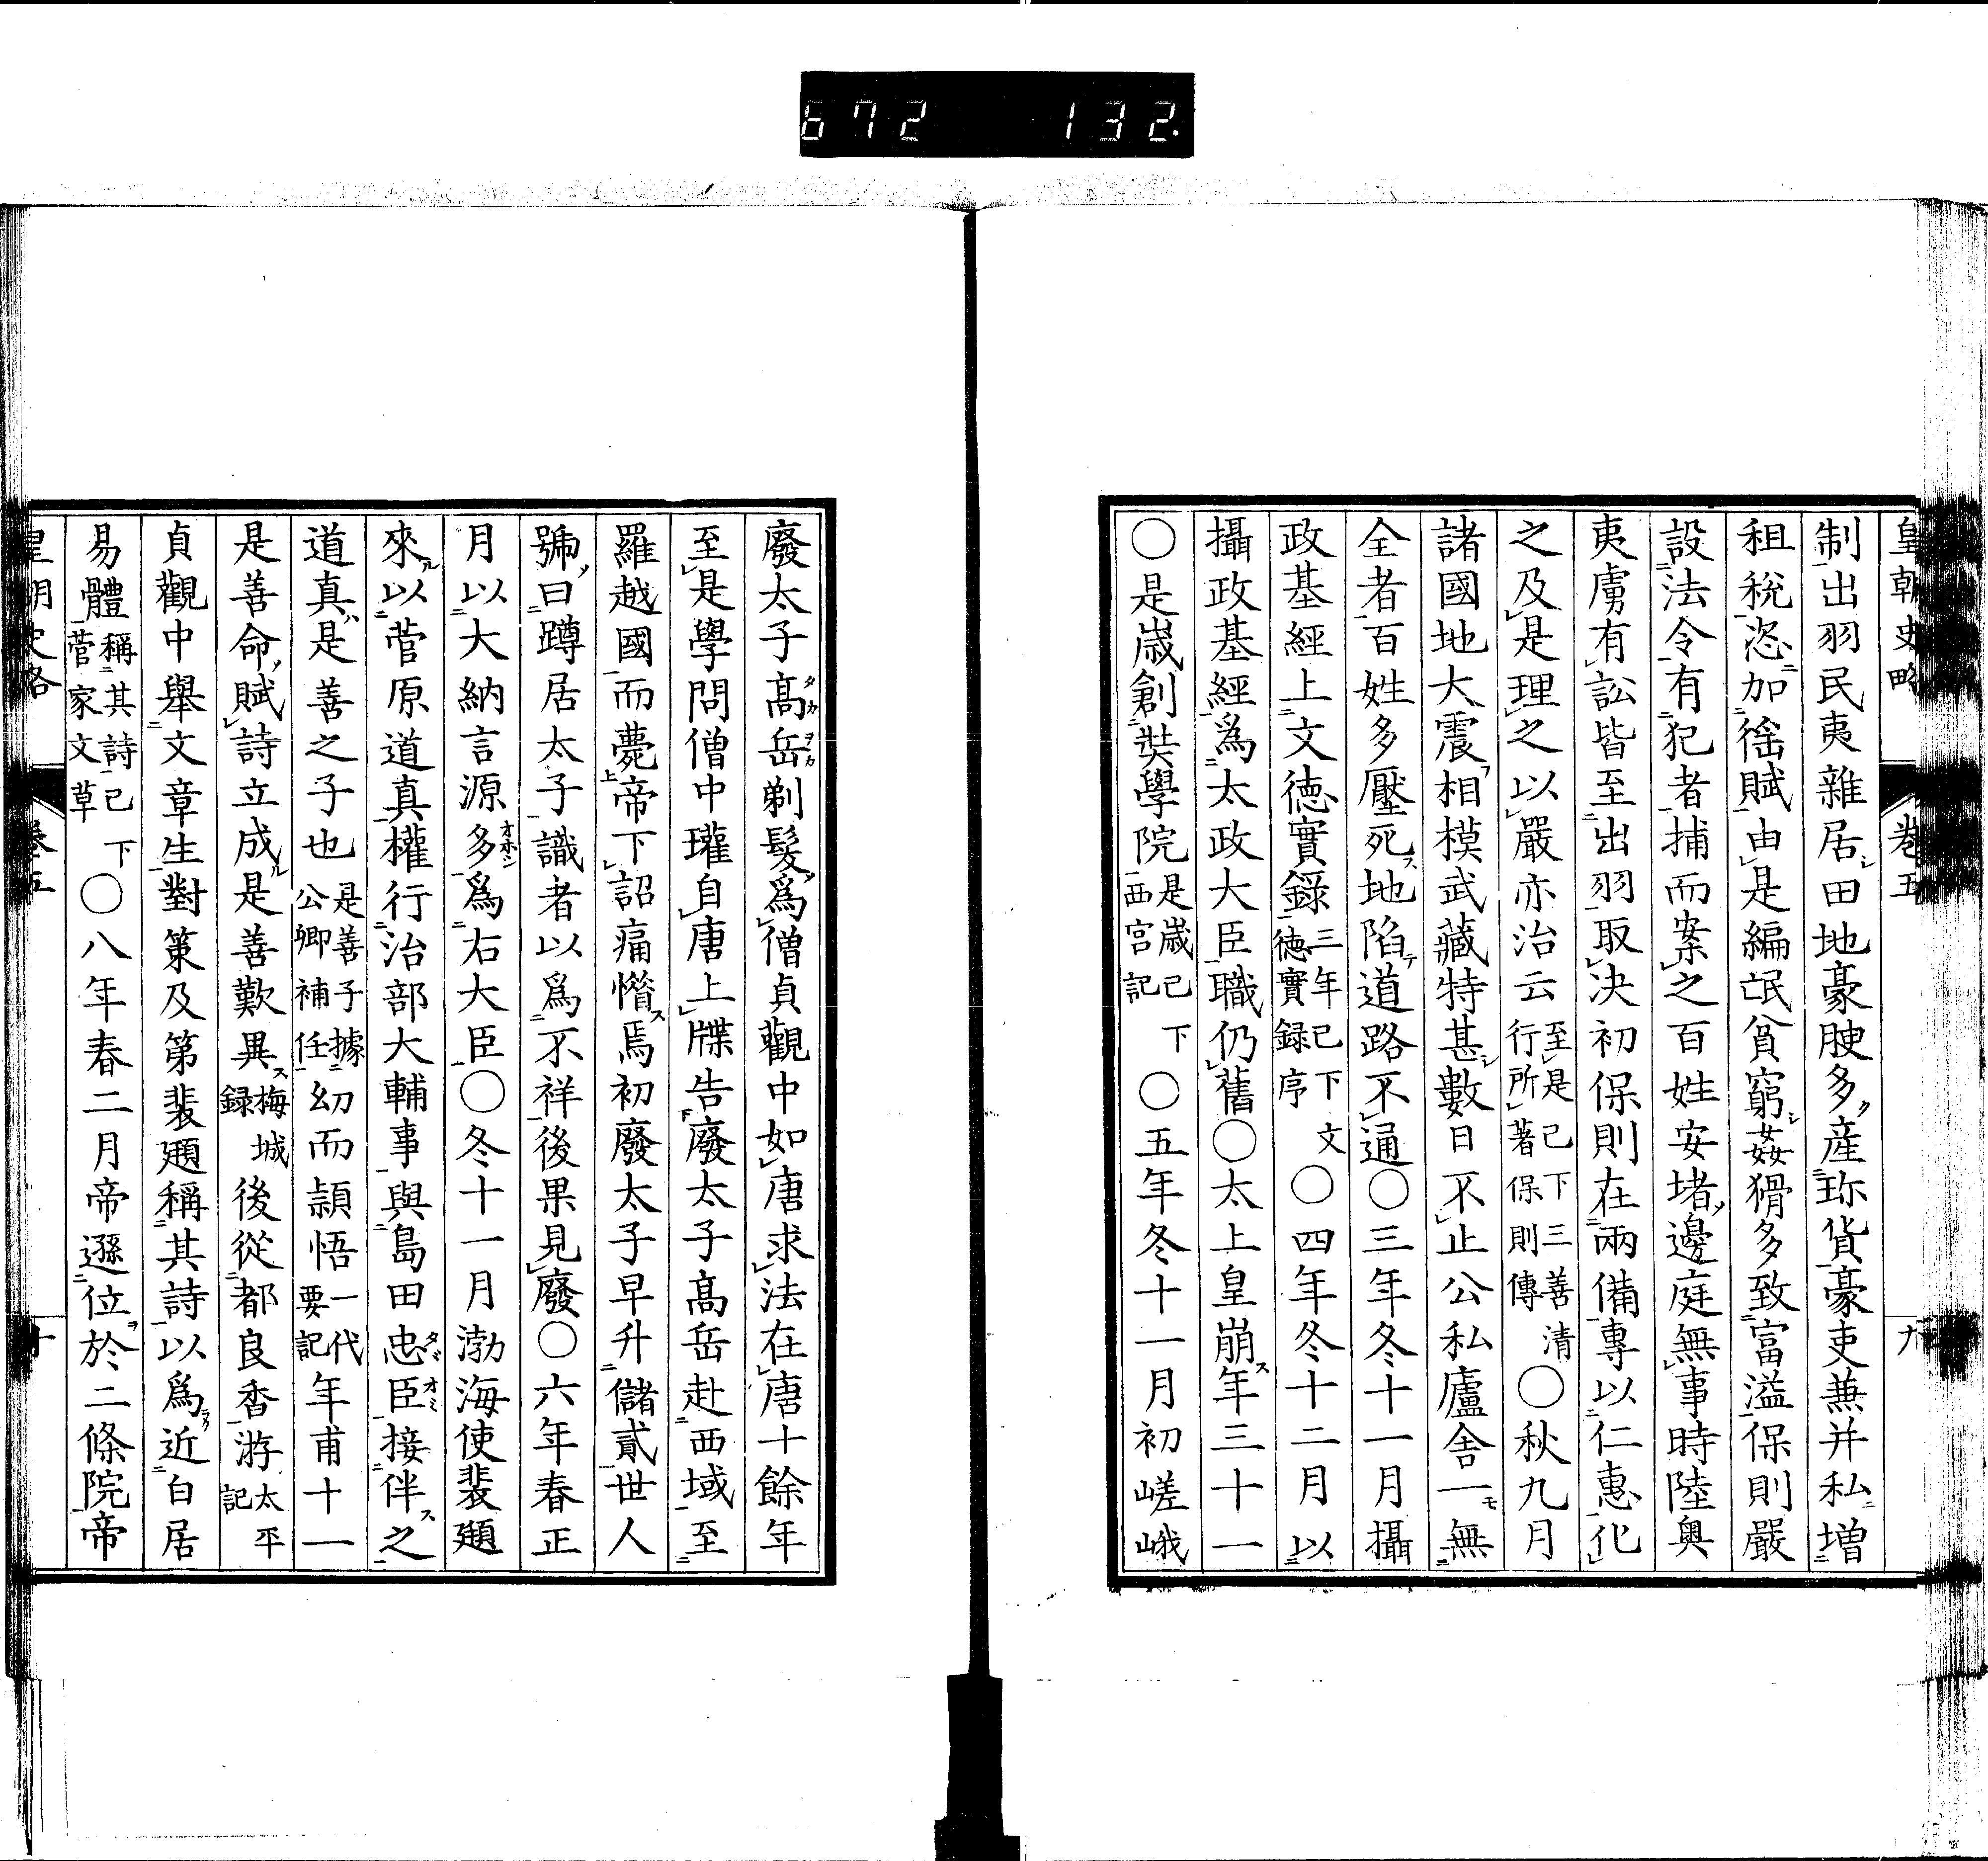 672 132
皇朝史略 卷五 九
制出羽民夷雜居田地豪腴多產珎貨豪吏兼并私增
租稅恣加徭賦由是編氓貧窮姦猾多致富溢保則嚴
設法令有犯者捕而案之百姓安堵邊庭無事時陸奧
夷虜有訟皆至出羽取決初保則在兩備專以仁惠化
之及是理之以嚴亦治云至是已下三善清行所著保則傳〇秋九月
諸國地大震相模武藏特甚數日不止公私廬舍一無
全者百姓多壓死地陷道路不通〇三年冬十一月攝
政基經上文德實錄三年已下文德實録序〇四年冬十二月以
攝政基經爲太政大臣職仍舊〇太上皇崩年三十一
〇是歲創奘學院是歲已下西宮記〇五年冬十一月初嵯峨
廢太子髙岳剃髮爲僧貞觀中如唐求法在唐十餘年
至是學問僧中瓘自唐上牒告廢太子髙岳赴西域至
羅越國而薨帝下詔痛憯焉初廢太子早升儲貳世人
號曰蹲居太子識者以爲不祥後果見廢〇六年春正
月以大納言源多爲右大臣〇冬十一月渤海使裴頲
來以菅原道真權行治部大輔事與島田忠臣接伴之
道真是善之子也是善子據公卿補任幻而頴悟一代要記年甫十一
是善命賦詩立成是善歎異梅城録後從都良香游太平記
貞觀中舉文章生對策及第裴頲稱其詩以爲近白居
易體稱其詩已下菅家文草〇八年春二月帝遜位於二條院帝
皇朝史略 卷五 十